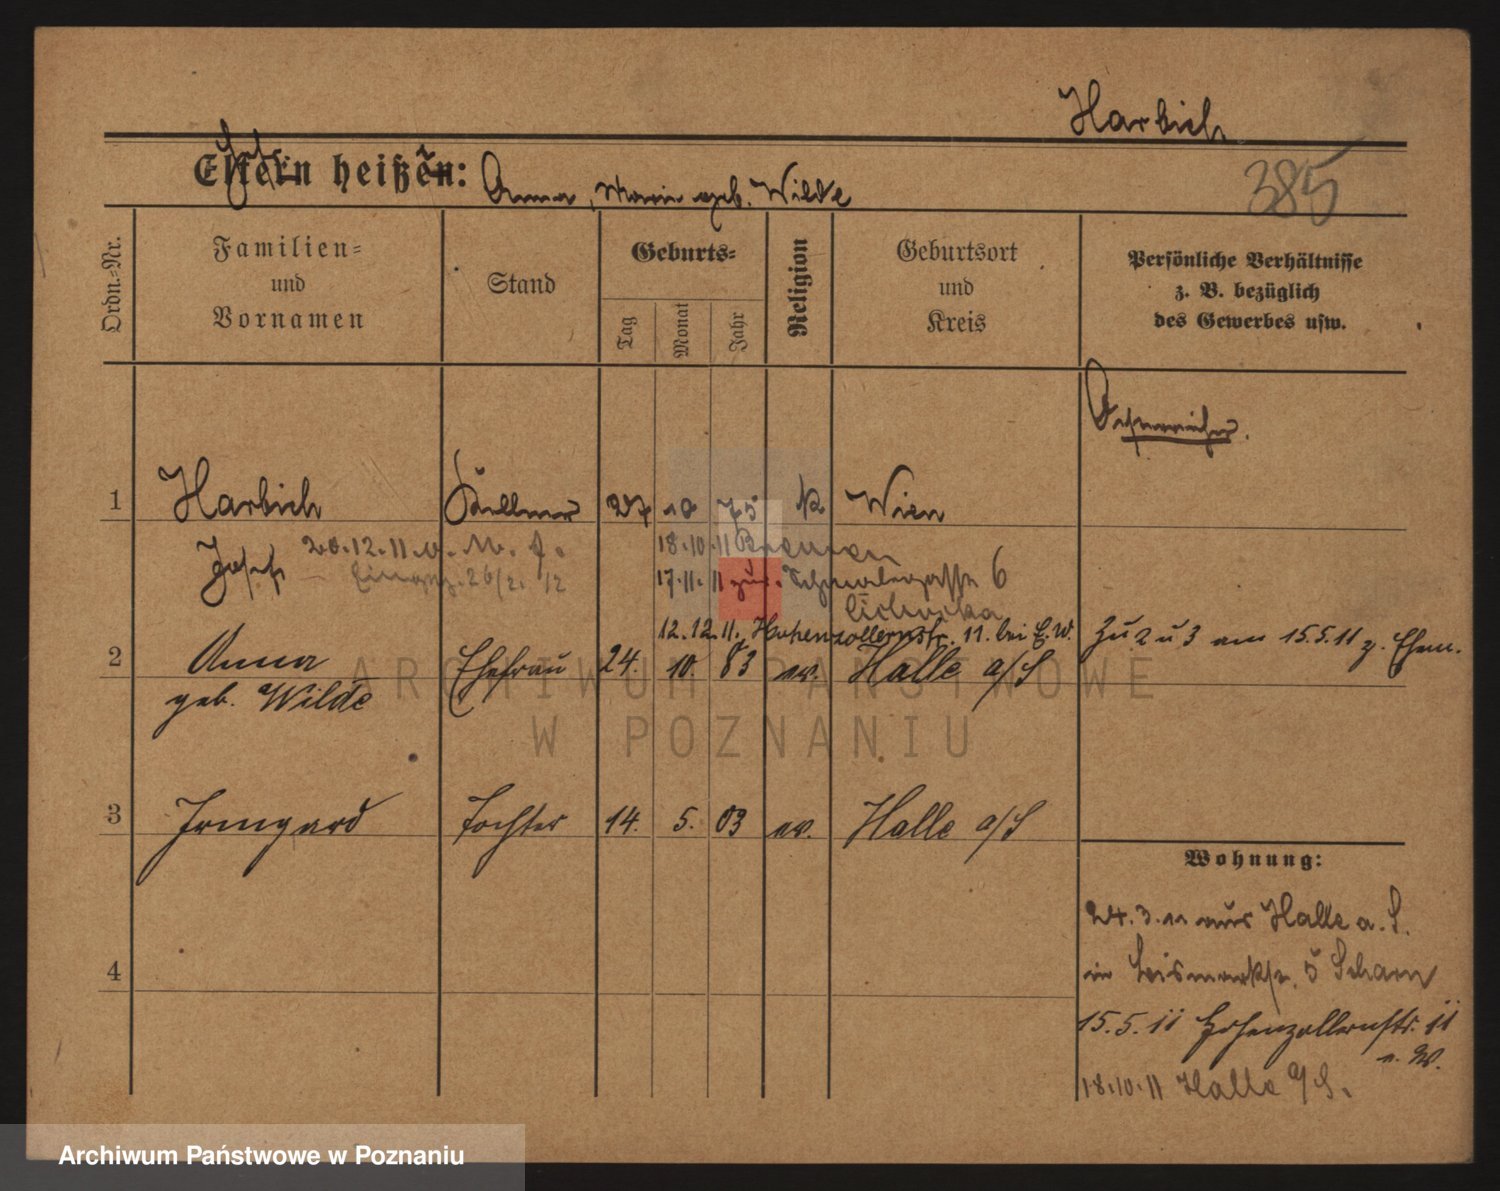 Harbich
385
Eltern heißen:
Anna, Marie geb. Wilde
Ordn.=Nr.
Familien=
und
Vornamen
Stand
Geburts=
Tag
Monat
Jahr
Religion
Geburtsort
und
Kreis
Persönliche Verhältnisse
z. B. bezüglich
des Gewerbes usw.
Oesterreicher.
1 Harbich Kellner 27 10 75 k Wien
Josef 20.12.11. 18.10.11 Bremen
26/2. 12 17.11.11 zur. 6
12.12.11. Hohenzollernstr. 11. bei E.W.
Zu 2 u 3 am 15.5.11 z. Ehem.
2 Anna Ehefrau 24. 10. 83 ev. Halle a/S
geb. Wilde
3 Irmgard Tochter 14. 5. 03 ev. Halle a/S
4
Wohnung:
24.3.11 aus Halle a. S.
in Bismarckstr. 5
15.5.11 Hohenzollernstr. 11
e. W.
18.10.11 Halle a/S.
ARCHIWUM PAŃSTWOWE
W POZNANIU
Archiwum Państwowe w Poznaniu